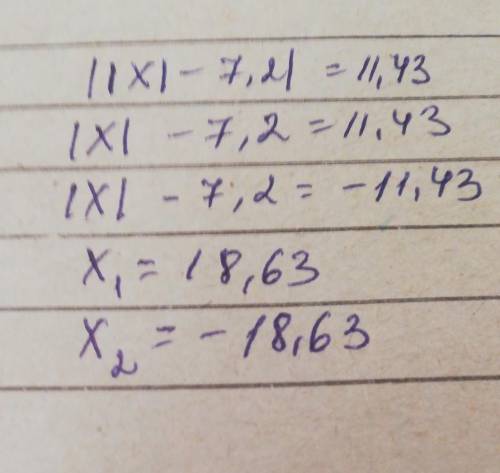 ||x| - 7,2| = 11,43
|x| - 7,2 = 11,43
|x| - 7,2 = -11,43
x₁ = 18,63
x₂ = -18,63